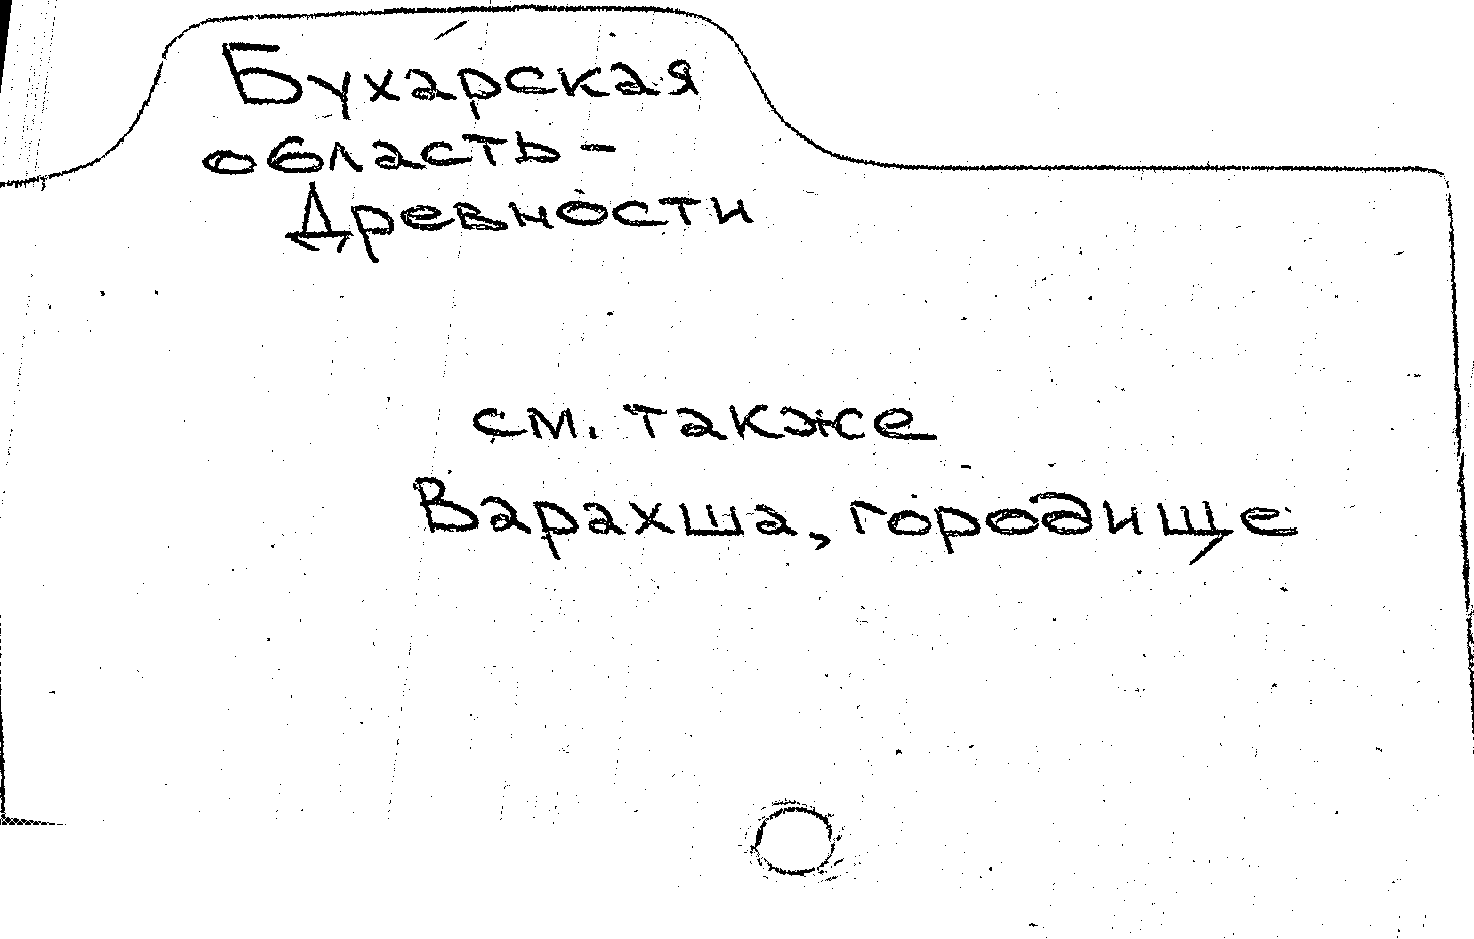 Бухарская
область –
Древности
см. также
Варахша, городище